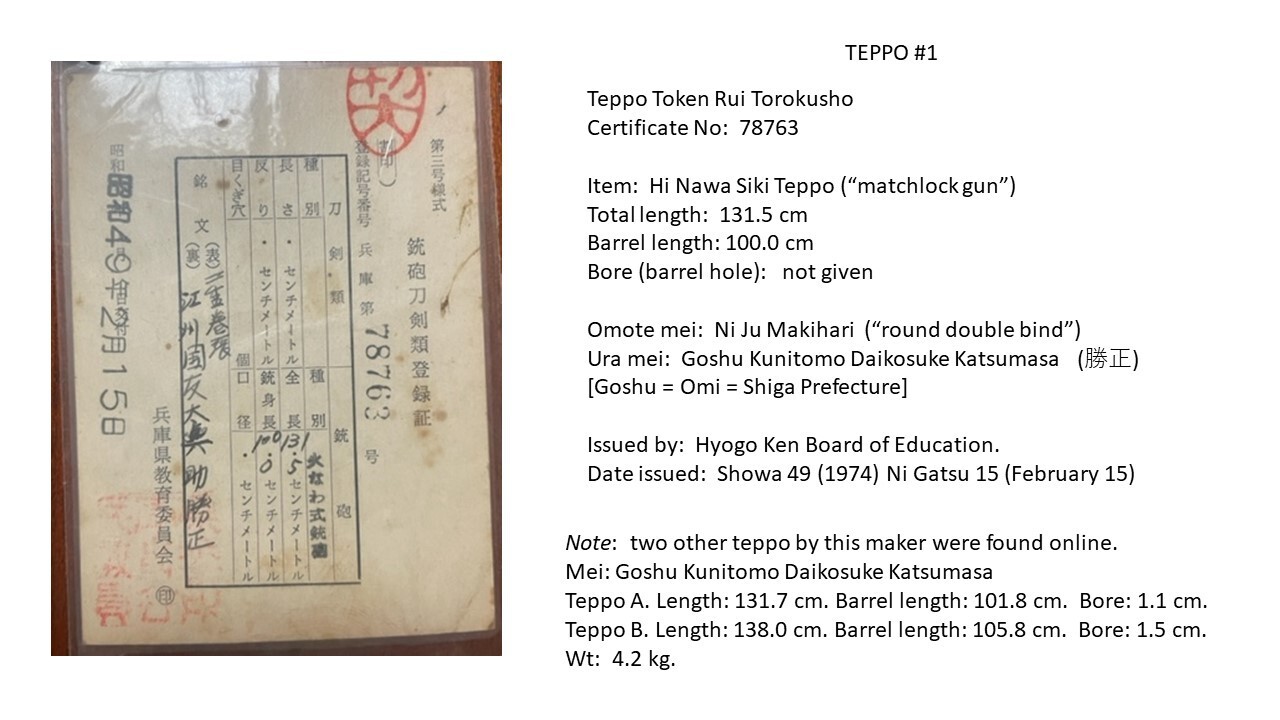 第三号様式
銃砲刀剣類登録証
(割印)
登録記号番号 兵庫第 78763 号
刀剣類
種別
長さ . センチメートル
反り . センチメートル
目くぎ穴 個
銃砲
種別 火なわ式銃砲
全長 131.5 センチメートル
銃身長 100.0 センチメートル
口径 . センチメートル
銘文 (表) 二重巻張
(裏) 江州国友大助勝正
兵庫県教育委員会 印
昭和
昭和49年2月15日
TEPPO #1
Teppo Token Rui Torokusho
Certificate No: 78763
Item: Hi Nawa Siki Teppo (“matchlock gun”)
Total length: 131.5 cm
Barrel length: 100.0 cm
Bore (barrel hole): not given
Omote mei: Ni Ju Makihari (“round double bind”)
Ura mei: Goshu Kunitomo Daikosuke Katsumasa (勝正)
[Goshu = Omi = Shiga Prefecture]
Issued by: Hyogo Ken Board of Education.
Date issued: Showa 49 (1974) Ni Gatsu 15 (February 15)
Note: two other teppo by this maker were found online.
Mei: Goshu Kunitomo Daikosuke Katsumasa
Teppo A. Length: 131.7 cm. Barrel length: 101.8 cm. Bore: 1.1 cm.
Teppo B. Length: 138.0 cm. Barrel length: 105.8 cm. Bore: 1.5 cm.
Wt: 4.2 kg.